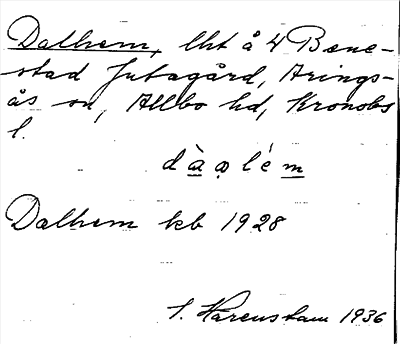 Dalhem, lht å 4 Bene-
stad Jutagård, Arings-
ås sn, Allbo hd, Kronobs
l.
dàǫlém
Dalhem kb 1928
S. Karenstam 1936